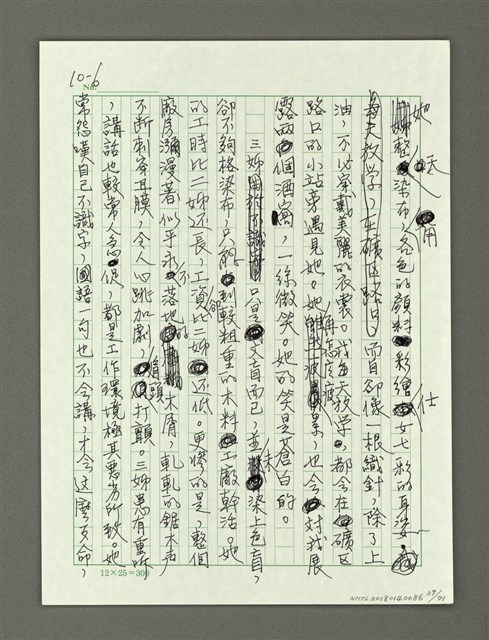 10-6
No.
她整天染布,各色的顏料彩繪仕女七彩的身姿,而
自卻像一根織針,除了上
油,不必穿戴美麗的衣裳。我每天放學,都會在礦區
路口的小站旁遇見她。她再怎麼疲累,也會對我展
露兩個酒窩,一絲微笑。她的笑是蒼白的。
三姊只是文盲而已,並未染上色盲,
卻不夠格染布,只能到較粗重的木料工廠幹活。她
的工時比二姊還長,工資卻比二姊還低。更慘的是,整個
廠房瀰漫著似乎永不落地的木屑,軋軋的鋸木聲
不斷刺穿耳膜,令人心跳加劇,眉頭打顫。三姊患有重聽
,講話也較常人急促,都是工作環境極其惡劣所致。她
常怨嘆自己不識字,國語一句也不會講,才會這麼歹命,
12×25=300
NMTL20180140086 39/71